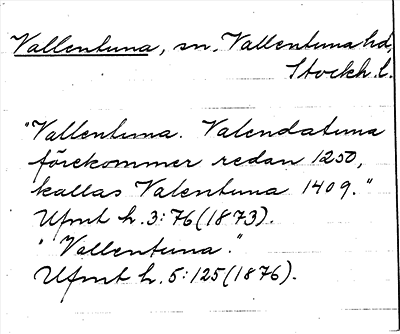 Vallentuna, sn, Vallentuna hd,
Stockh. l.
"Vallentuna. Valendatuna
förekommer redan 1250,
kallas Valentuna 1409."
Ufmt h. 3:76 (1873).
"Vallentuna."
Ufmt h. 5:125 (1876).